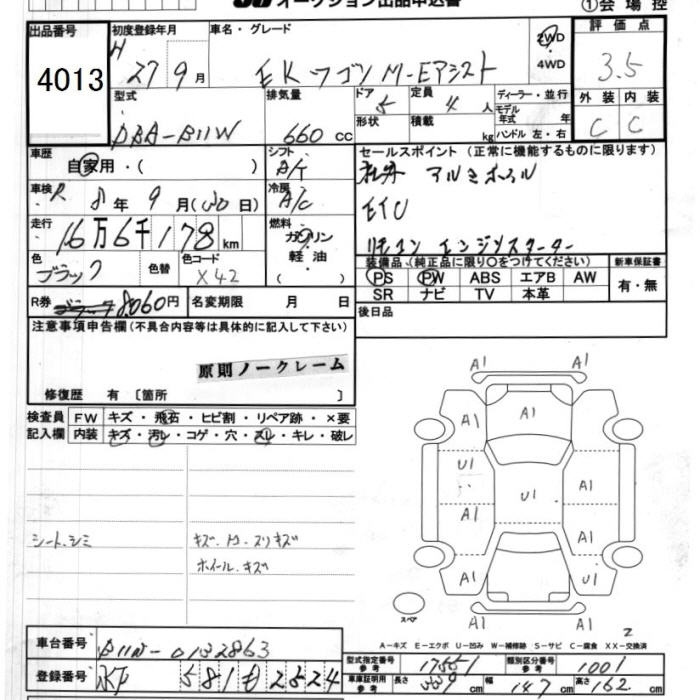 オークション出品申込書 ①会場控
出品番号 4013
初度登録年月 H 27 9月
車名・グレード EKワゴン M-Eアシスト
2WD
4WD
評価点 3.5
外装 C 内装 C
型式 DBA-B11W
排気量 660 cc
ドア 5 形状
定員 4 人 積載 kg
ディーラー・並行
モデル年式 年
ハンドル 左・右
車歴 自家用・( )
シフト A/T
車検 R 8年 9月( 日)
冷房 A/C
走行 16万6千178 km
燃料 ガソリン・軽油 ( )
色 ブラック 色替
色コード X42
R券 8,060円
名変期限 月 日
セールスポイント (正常に機能するものに限ります)
社外 アルミホイル
ETC
リモコン エンジンスターター
装備品 (純正品に限り○をつけてください)
PS PW ABS エアB AW
SR ナビ TV 本革
新車保証書 有・無
後日品
注意事項申告欄 (不具合内容等は具体的に記入して下さい)
原則ノークレーム
修復歴 有 〔箇所 〕
検査員記入欄
FW キズ・飛石・ヒビ割・リペア跡・×要
内装 キズ・汚レ・コゲ・穴・スレ・キレ・破レ
シート、シミ
キズ・凹・スリキズ
ホイール・キズ
A1 A1
A1 A1 A1
U1 A1
U1
A1 A1
A1 U1
A1 A1
スペア
2
A-キズ E-エクボ U-凹み W-補修跡 S-サビ C-腐食 XX-交換済
車台番号 B11W-0132863
登録番号 581 2524
型式指定番号 参考 17551
類別区分番号 参考 1001
車庫証明用 参考 長さ 339 cm 幅 147 cm 高さ 162 cm